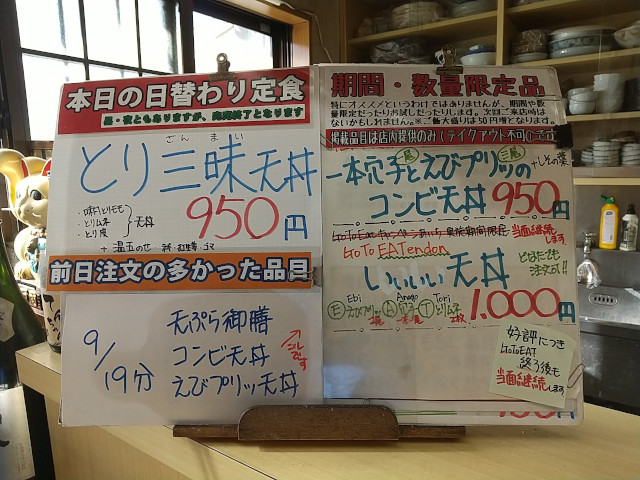 本日の日替わり定食
昼・夜ともありますが、売切終了となります
ざんまい
とり三昧天丼
・味付とりモモ
・とりムネ
・とり皮
天丼
950円
+ 温玉のせ
前日注文の多かった品目
9/19分
天ぷら御膳
コンビ天丼
えびプリッ天丼
期間・数量限定品
特にオススメというわけではありませんが、期間や数
量限定だったりお試しだったりします。次回ご来店時は
ないかもしれません。※ご飯大盛りは50円増となります。
掲載品目は店内提供のみ(テイクアウト不可)です
一尾 三尾
一本穴子とえびプリッの
+しその葉
コンビ天丼 950円
当面継続します
GoTo EATendon
どなたでも
注文可!!
いいいい天丼
Ebi Anago Tori
Eえびプリッ A穴子 Tとりムネ
1.000円
好評につき
GoToEAT
終了後も
当面継続します